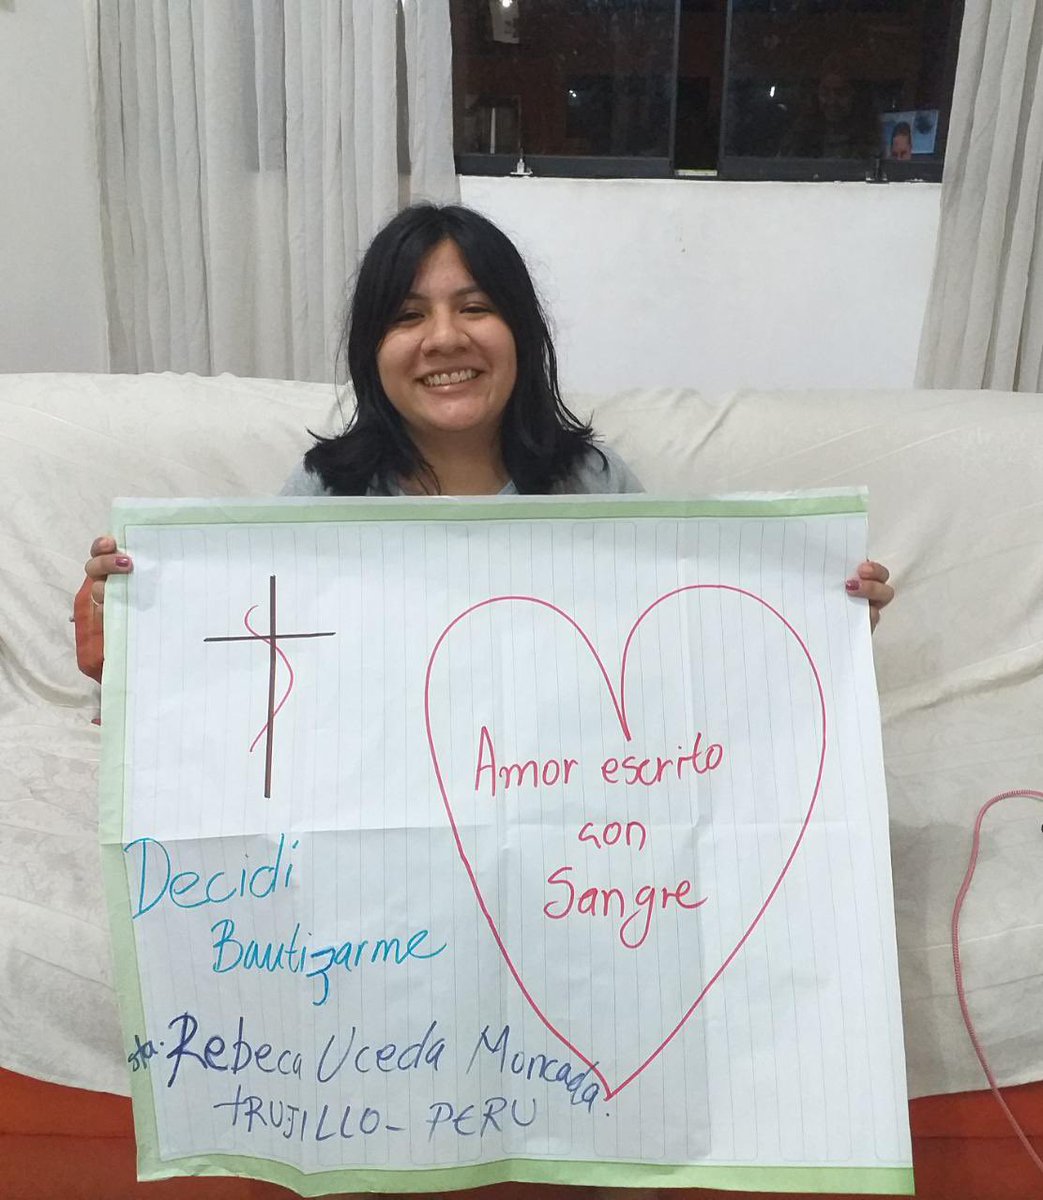 Amor escrito
con
Sangre
Decidí
Bautizarme
sta. Rebeca Uceda Moncada.
TRUJILLO - PERU